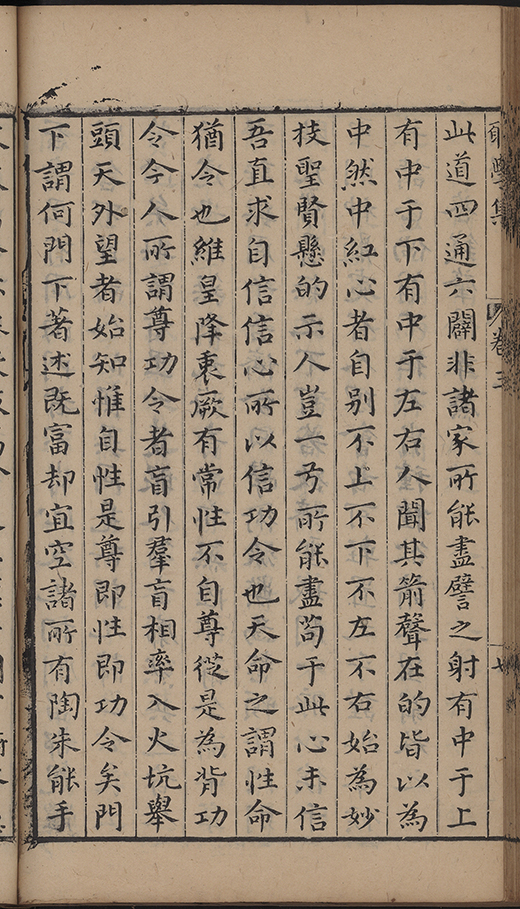 此道四通六闢非諸家所能盡譬之射有中于上
有中于下有中于左右人聞其箭聲在的皆以為
中然中紅心者自別不上不下不左不右始為妙
技聖賢懸的示人豈一方所能盡苟于此心未信
吾直求自信信心所以信功令也天命之謂性命
猶令也維皇降衷厥有常性不自尊從是為背功
令今人所謂尊功令者盲引羣盲相率入火坑舉
頭天外望者始知惟自性是尊即性即功令矣門
下謂何門下著述既富却宜空諸所有陶朱能手
集 卷三